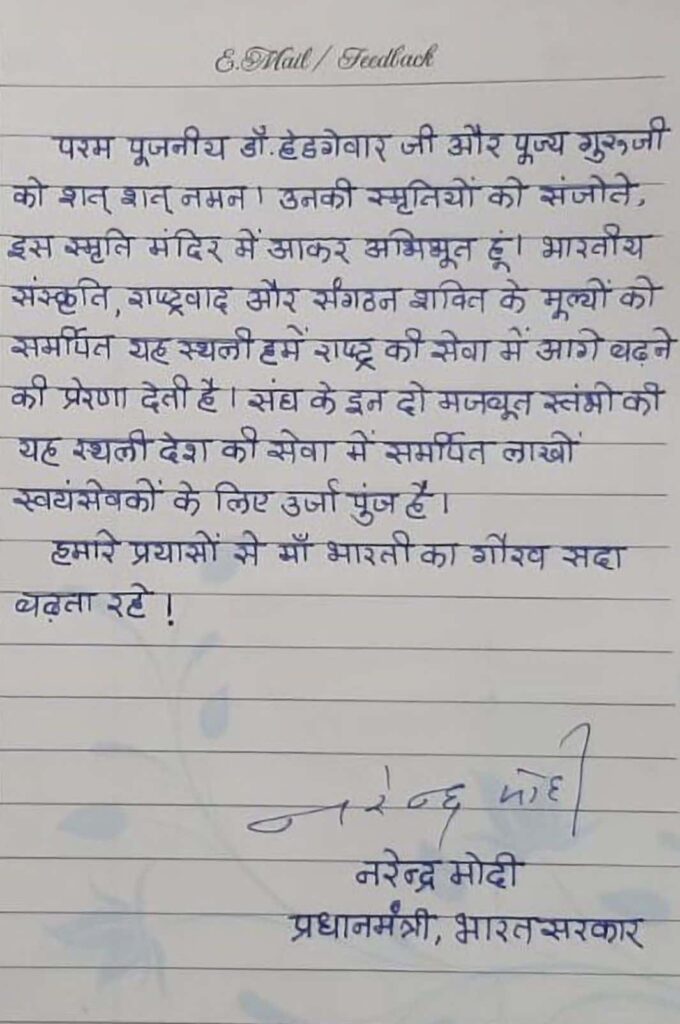 E.Mail / Feedback
परम पूजनीय डॉ. हेडगेवार जी और पूज्य गुरुजी
को शत् शत् नमन। उनकी स्मृतियों को संजोते,
इस स्मृति मंदिर में आकर अभिभूत हूं। भारतीय
संस्कृति, राष्ट्रवाद और संगठन शक्ति के मूल्यों को
समर्पित यह स्थली हमें राष्ट्र की सेवा में आगे बढ़ने
की प्रेरणा देती है। संघ के इन दो मजबूत स्तंभो की
यह स्थली देश की सेवा में समर्पित लाखों
स्वयंसेवकों के लिए उर्जा पुंज है।
हमारे प्रयासों से माँ भारती का गौरव सदा
बढ़ता रहे !
नरेन्द्र मोदी
नरेन्द्र मोदी
प्रधानमंत्री, भारत सरकार